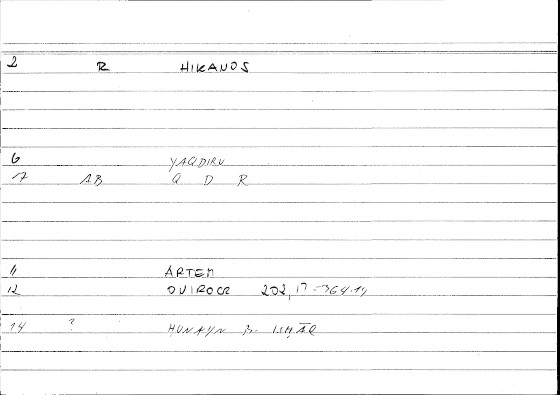 2 R HIKANOS
6 YAQDIRU
7 AB Q D R
11 ARTEM
12 OVIROCR 202,17 = 364.14
14 ? HUNAYN B. ISḤĀQ